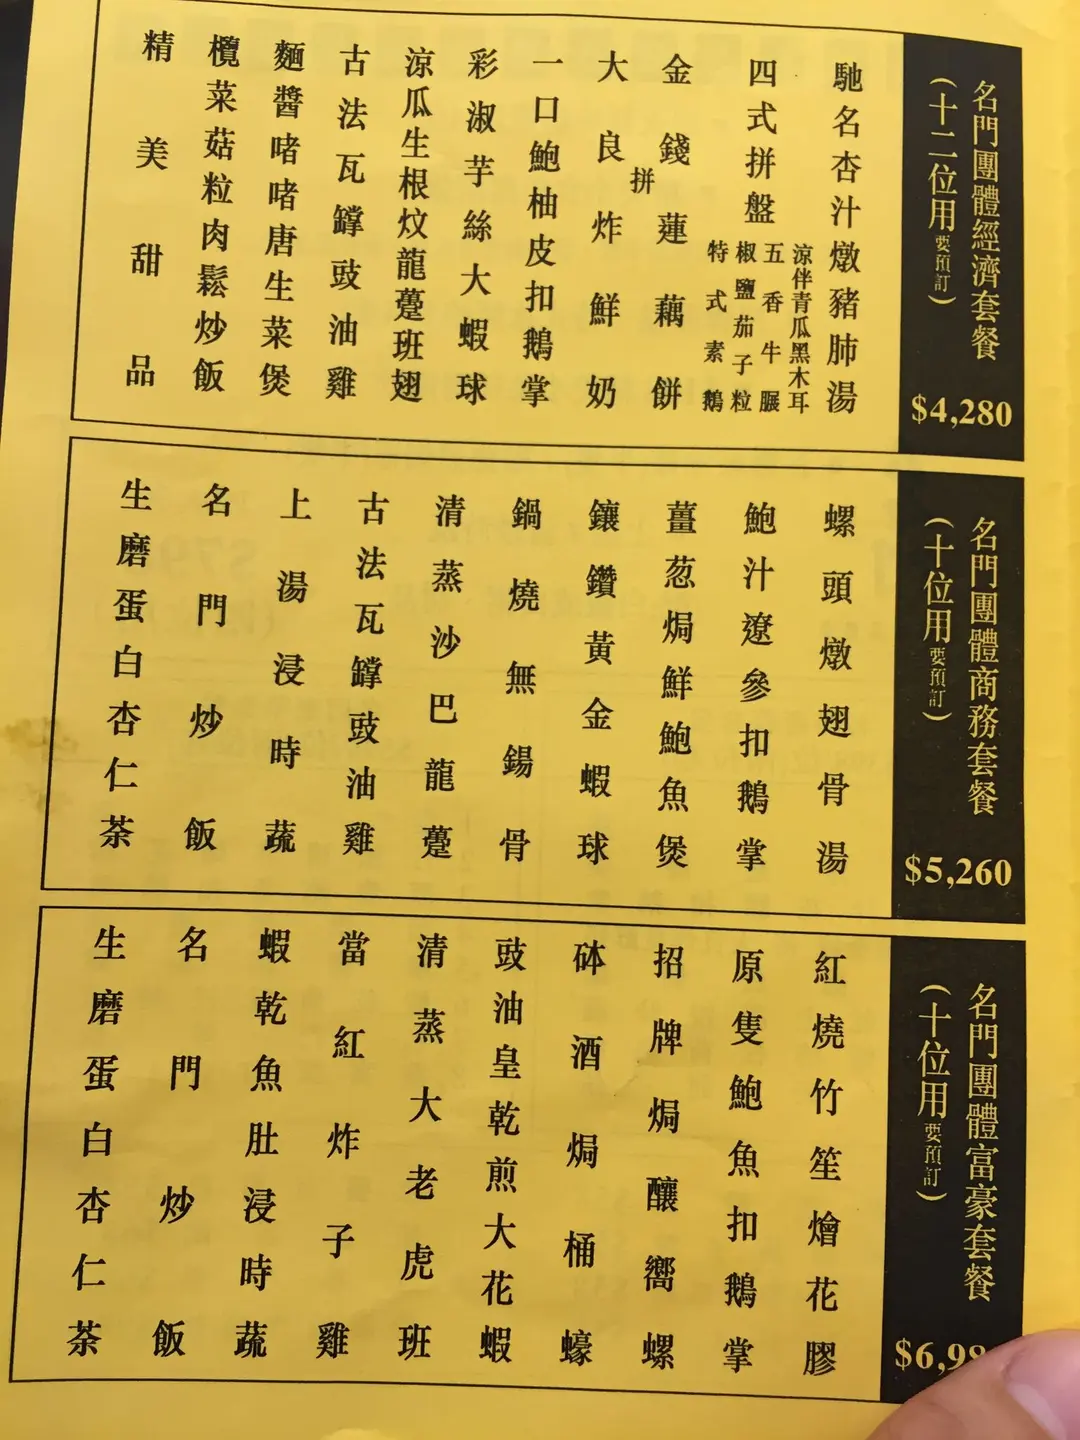 名門團體經濟套餐
(十二位用要預訂)
$4,280
馳名杏汁燉豬肺湯
四式拼盤
涼伴青瓜黑木耳
五香牛𦟌
椒鹽茄子粒
特式素鵝
金錢蓮藕餅
拼
大良炸鮮奶
一口鮑柚皮扣鵝掌
彩淑芋絲大蝦球
涼瓜生根炆龍躉班翅
古法瓦罉豉油雞
麵醬啫啫唐生菜煲
欖菜菇粒肉鬆炒飯
精美甜品
名門團體商務套餐
(十位用要預訂)
$5,260
螺頭燉翅骨湯
鮑汁遼參扣鵝掌
薑葱焗鮮鮑魚煲
鑲鑽黃金蝦球
鍋燒無鍚骨
清蒸沙巴龍躉
古法瓦罉豉油雞
上湯浸時蔬
名門炒飯
生磨蛋白杏仁茶
名門團體富豪套餐
(十位用要預訂)
$6,98
紅燒竹笙燴花膠
原隻鮑魚扣鵝掌
招牌焗釀嚮螺
砵酒焗桶蠔
豉油皇乾煎大花蝦
清蒸大老虎班
當紅炸子雞
蝦乾魚肚浸時蔬
名門炒飯
生磨蛋白杏仁茶